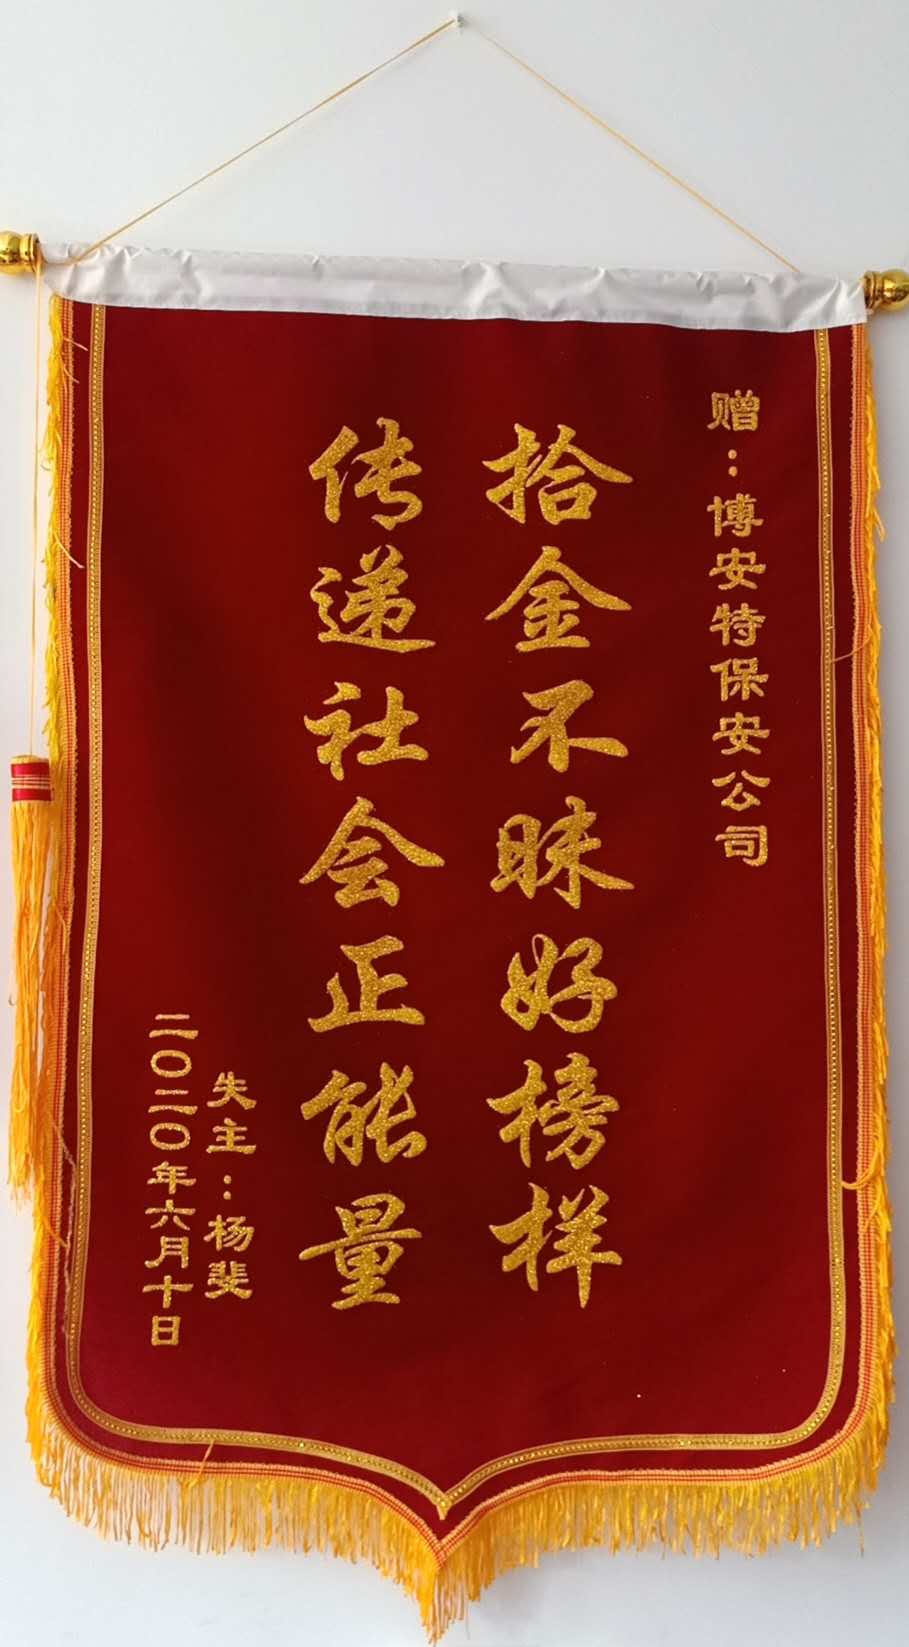 赠：博安特保安公司
拾金不昧好榜样
传递社会正能量
失主：杨斐
二〇二〇年六月十日